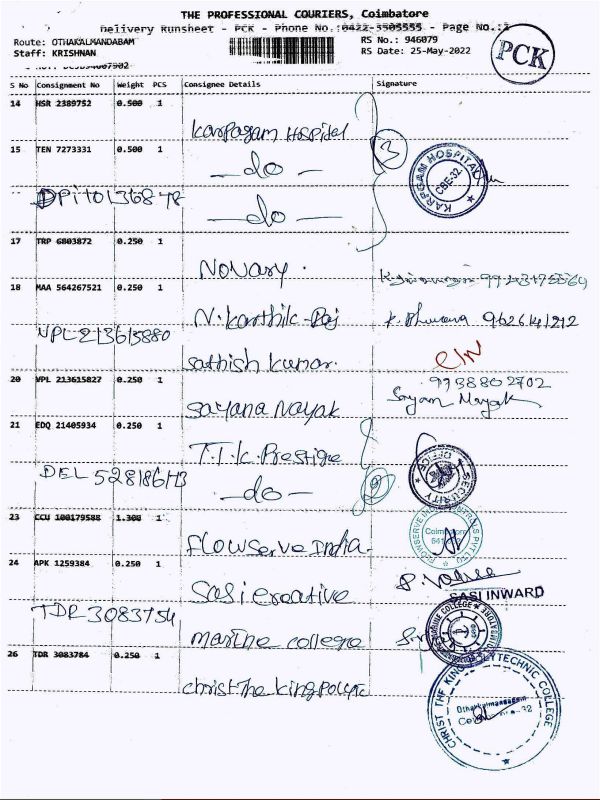 THE PROFESSIONAL COURIERS, Coimbatore
Delivery Runsheet - PCK - Phone No.:0422-3505555 - Page No.:
Route: OTHAKALMANDABAM
Staff: KRISHNAN
RS No.: 946079
RS Date: 25-May-2022
PCK
S No Consignment No Weight PCS Consignee Details Signature
14 HSR 2389752 0.500 1
Karpagam Hospital
15 TEN 7273331 0.500 1
- do -
3
KARPGAM HOSPITAL
CBE-32
- do -
17 TRP 6803872 0.250 1
Novary.
18 MAA 564267521 0.250 1
N. Karthik-Raj
9626141212
VPL 213615880
Sathish Kumar.
20 VPL 213615827 0.250 1
9938802702
Sayam Nayak
Sayana Nayak
21 EDQ 21405934 0.250 1
T.T.K. Prestige
DEL 52818643
- do -
2
SECURITY
23 CCU 100179588 1.300 1
Flowserve India.
24 APK 1259384 0.250 1
Sasi Creative
SASI INWARD
TDR 3083754
Marine College
26 TDR 3083784 0.250 1
Christ The King Polytec
CHRIST THE KING POLYTECHNIC COLLEGE
Othakkalmandapam